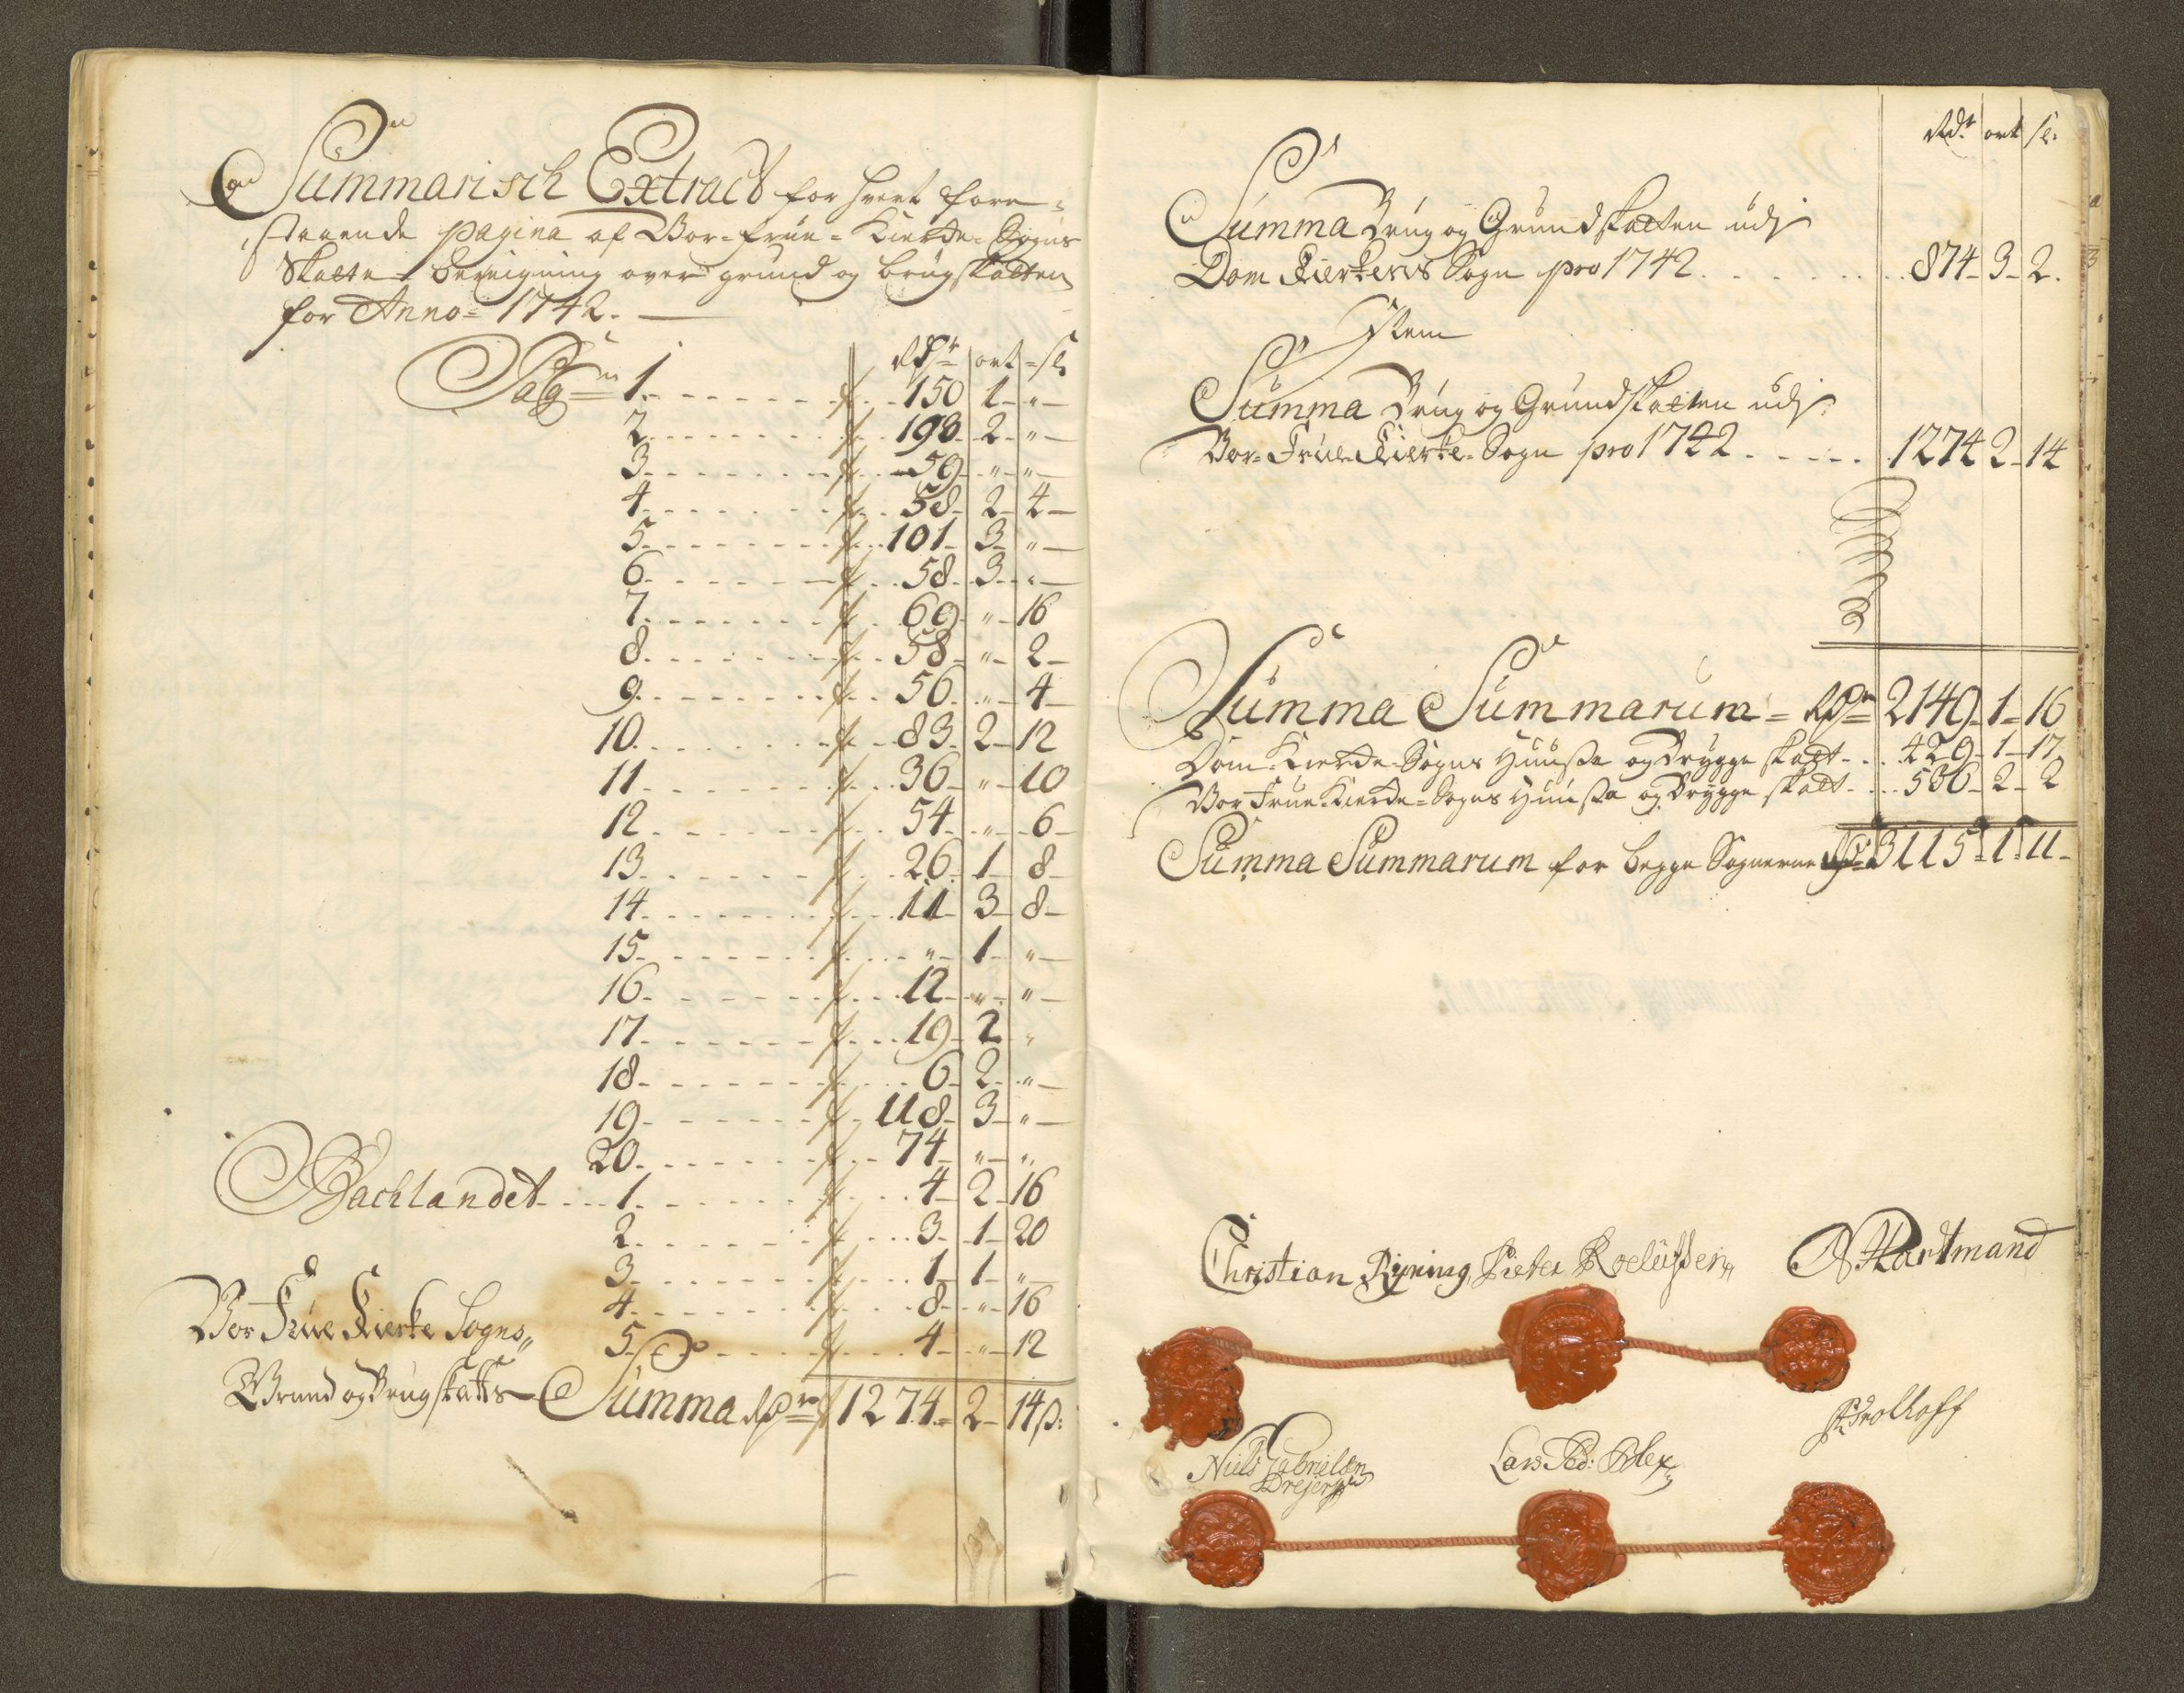 Summarisch Extract for hvert fore=
staaende pagina af Vor-Frue-Kierke-Sogns
Skatte-Bereigning over grund og brugskatten
for Anno 1742.
Rdr ort sl
Pag 1 150 1 "
2 198 2 "
3 59 " "
4 58 2 4
5 101 3 "
6 58 3 "
7 69 " 16
8 58 " 2
9 56 " 4
10 83 2 12
11 36 " 10
12 54 " 6
13 26 1 8
14 11 3 8
15 " 1 "
16 12 " "
17 19 2 "
18 6 2 "
19 118 3 "
20 74 " "
Bachlandet 1 4 2 16
2 3 1 20
3 1 1 "
4 8 " 16
Vor Frue Kierke Sogns
5 4 " 12
Grund og Brugskatts Summa Rdr 1274 2 14 s:
Rdr ort sl:
Summa Brug og Grundskatten udj
Dom Kierkens Sogn pro 1742 874 3 2.
Item
Summa Brug og Grundskatten udj
Vor-Frue-Kierke-Sogn pro 1742 1274 2 14
Summa Summarum = Rdr 2149 1 16
Dom-Kierke-Sogns Huusse og Brygge skatt 429 1 17
Vor Frue-Kierke-Sogns Huusse og Brygge skatt 536 2 2
Summa Summarum for begge Sognerne Rdr 3115 1 11
Christian Ryning Pieter Roelufsen Hartmand
Niels Gabrielsen
Drejer
Lars Ped: